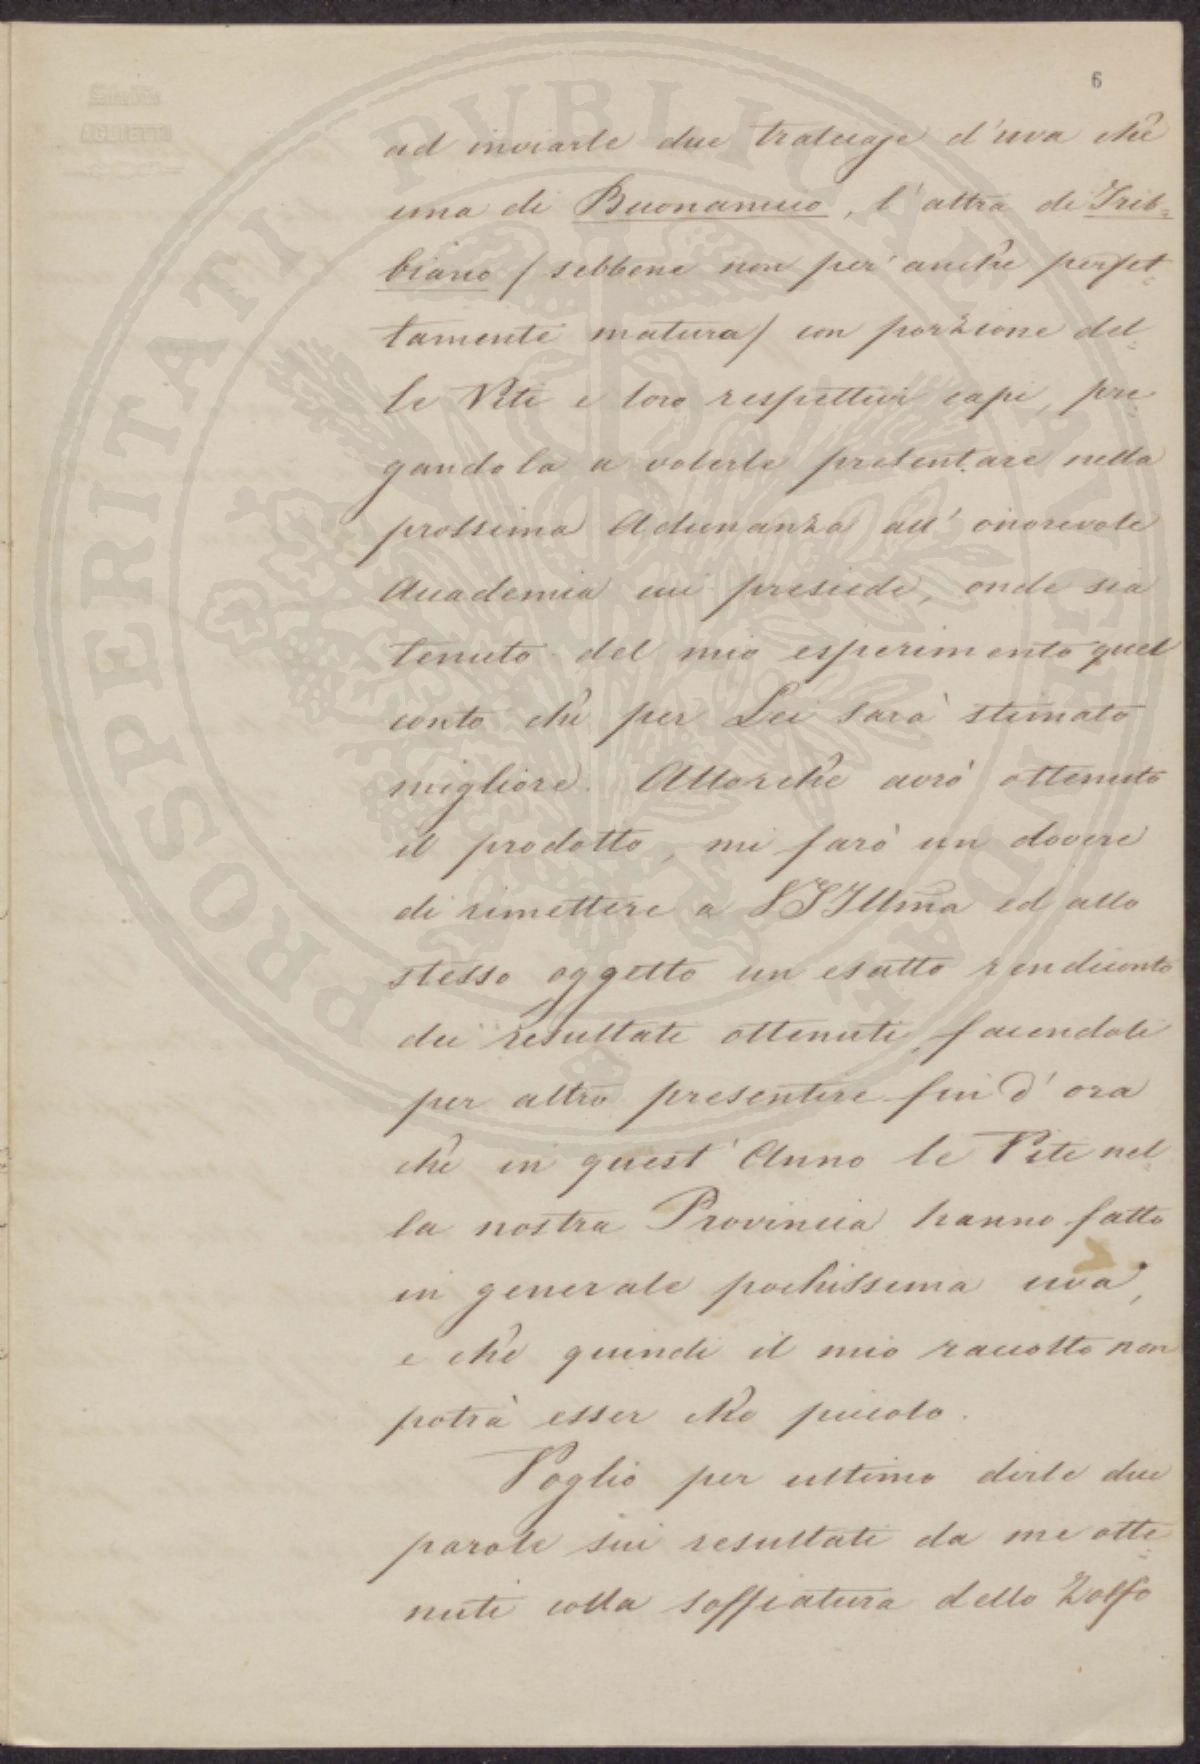 6
ad inviarle due tralciaje d'uva chè
una di Buonamico, l'altra di Trib=
biano / sebbene non per anche perfet=
tamente matura / con porzione del=
le Viti e loro respettivi capi, pre
gandola a volerle presentare nella
prossima Adunanza all' onorevole
Accademia cui presiede, onde sia
tenuto del mio esperimento quel
conto che per Lei sarà stimato
migliore. Allorchè avrò ottenuto
il prodotto, mi farò un dovere
di rimettere a VS Illma ed allo
stesso oggetto un esatto rendiconto
dei resultati ottenuti, facendole
per altro presentire fin d' ora
che in quest' Anno le Viti nel=
la nostra Provincia hanno fatto
in generale pochissima uva,
e che quindi il mio raccolto non
potrà esser che piccolo.
Voglio per ultimo dirle due
parole sui resultati da me otte=
nuti colla soffiatura dello Zolfo
PROSPERITATI PVBLICAE